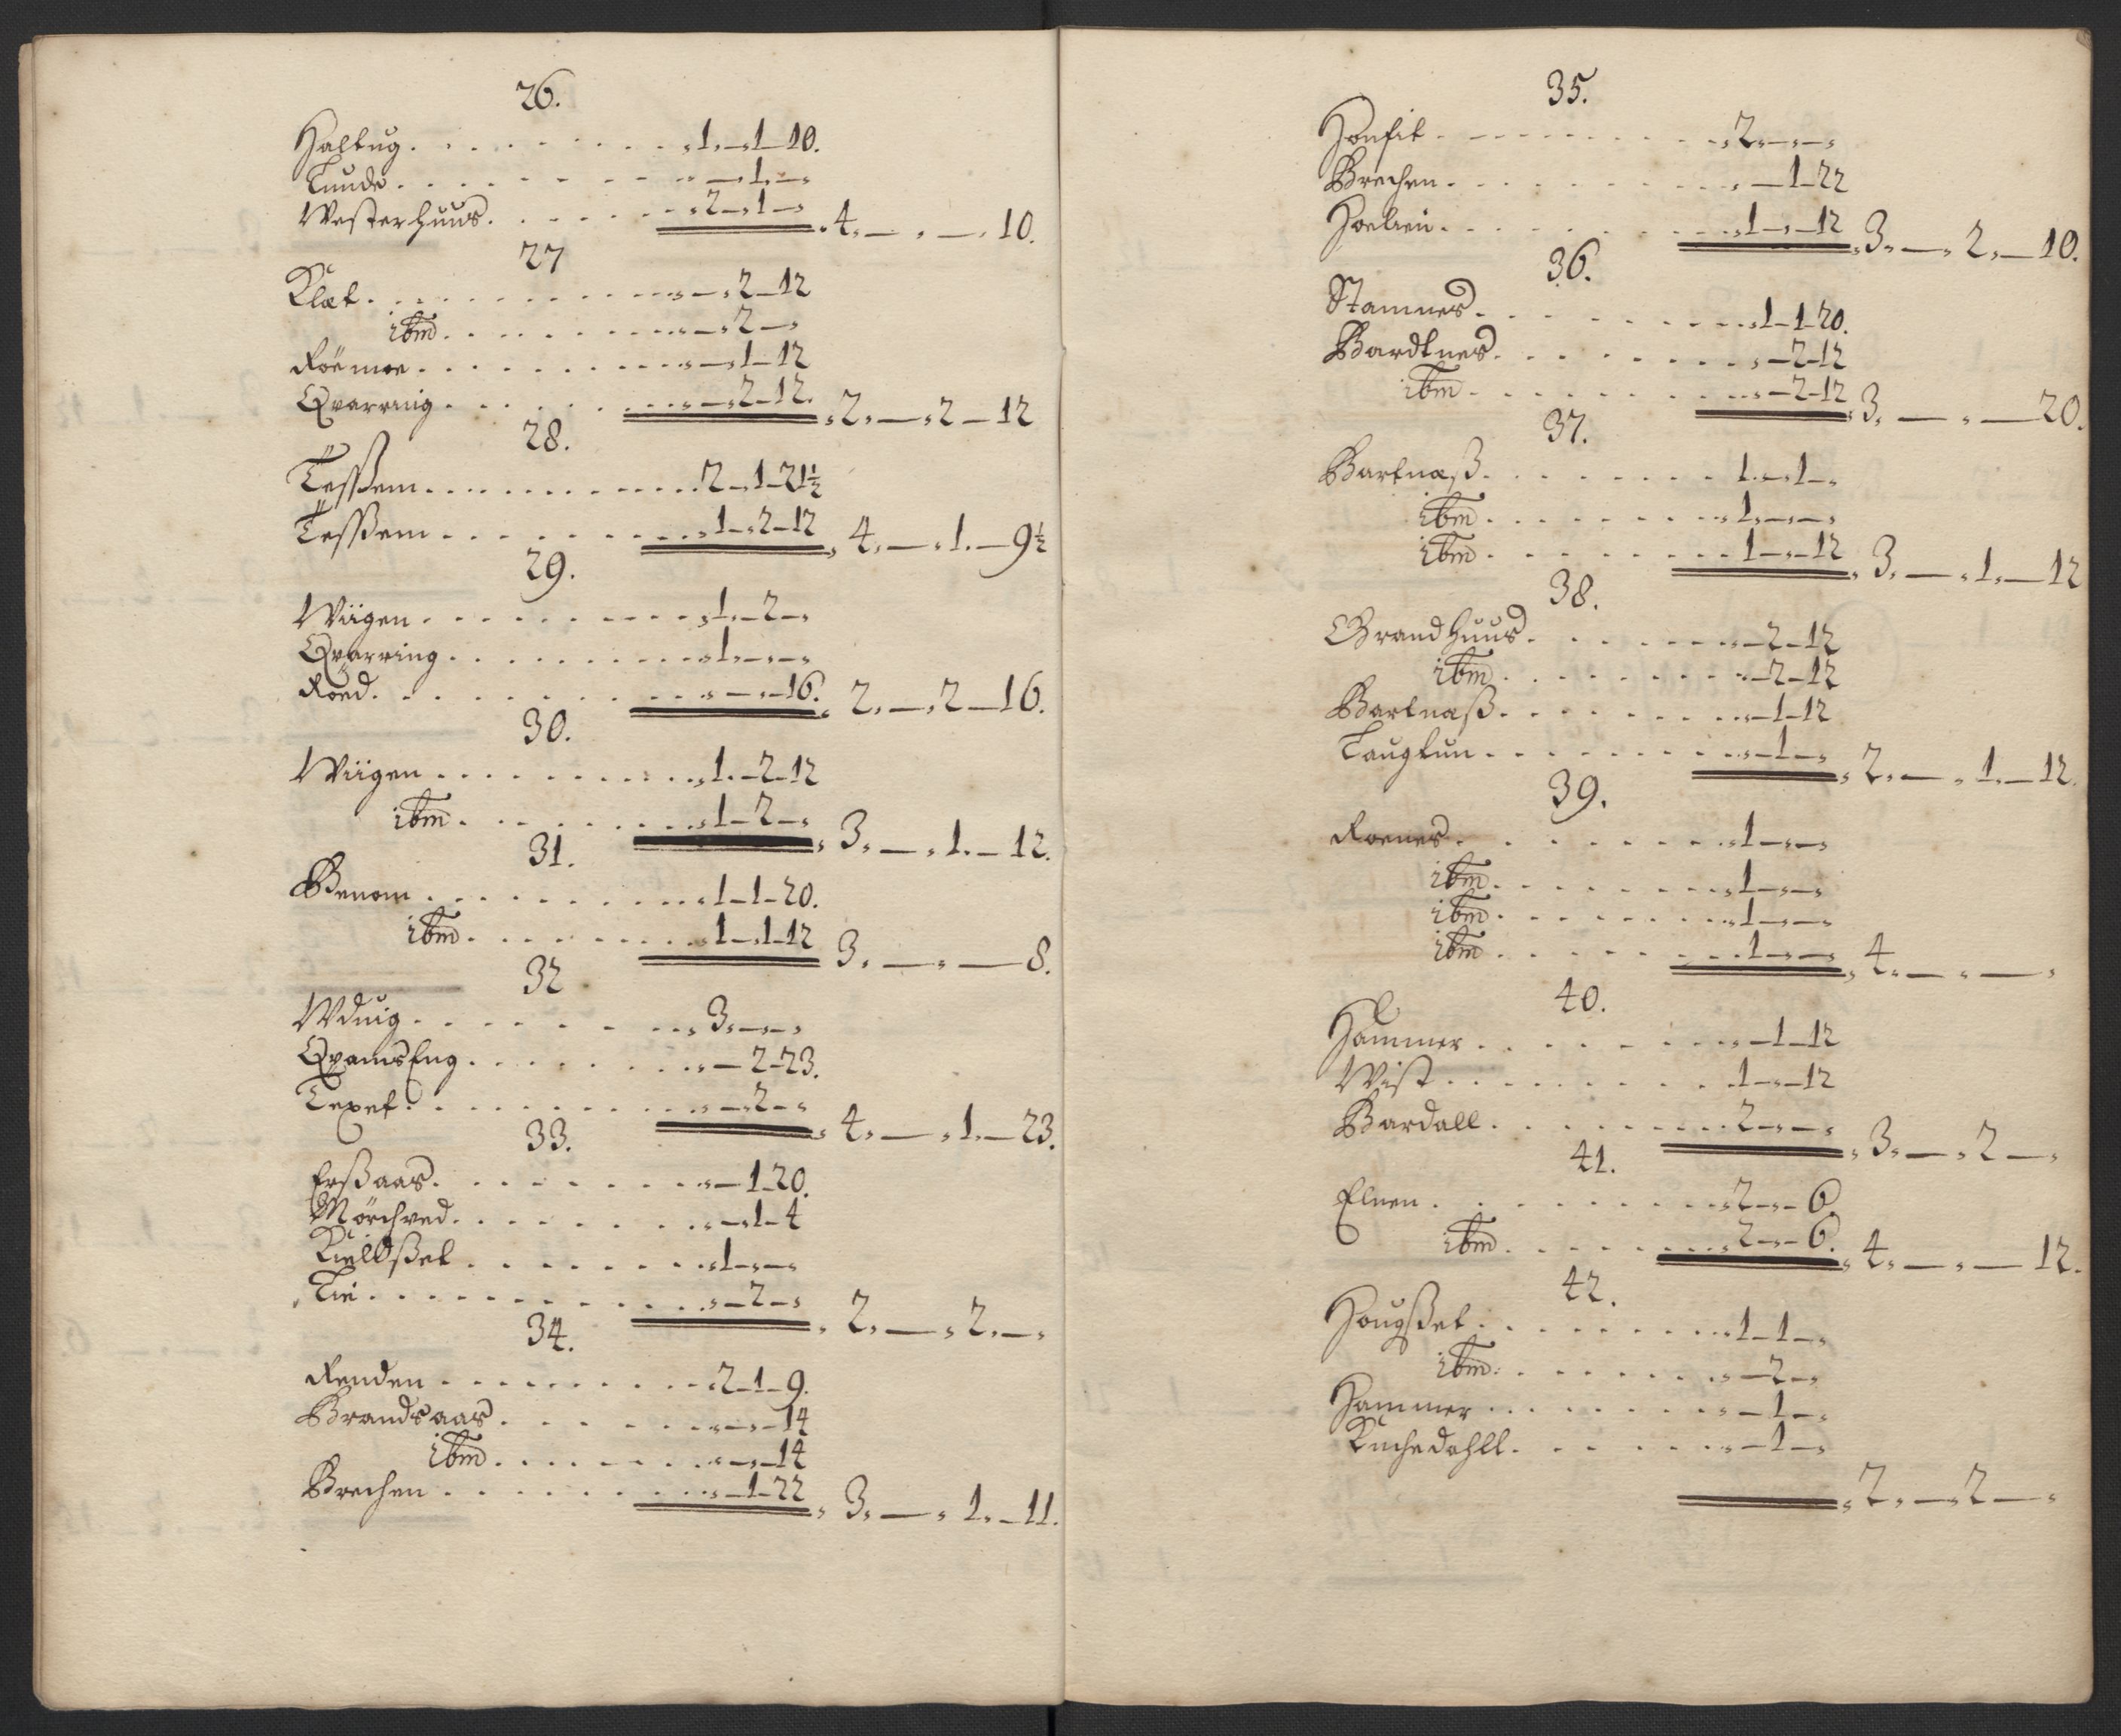 26.
Halbug . . . . . . . . . 1 — 1 — 10.
Tunde . . . . . . . . . — 1 —
Westerhuus . . . . . . 2 — 1 — 4 — — 10.
27
Klæt . . . . . . . . . . — 2 — 12
ibm . . . . . . . . . — 2 —
Röëmoe . . . . . . . . . — 1 — 12
Qvarving . . . . . . . — 2 — 12. 2 — 2 — 12
28.
Teßem . . . . . . . . . . 2 — 1 — 21½
Teßem . . . . . . . . . 1 — 2 — 12 4 — 1 — 9½
29.
Wiigen . . . . . . . . . 1 — 2 —
Qvarving . . . . . . . . 1 — —
Röed . . . . . . . . . . — — 16. 2 — 2 — 16.
30.
Wiigen . . . . . . . . . 1 — 2 — 12
ibm . . . . . . . . . 1 — 2 — 3 — 1 — 12.
31.
Benom . . . . . . . . . 1 — 1 — 20.
ibm . . . . . . . . . 1 — 1 — 12 3 — — 8.
32
Wduig . . . . . . . . . 3 — —
QvamsEng . . . . . . . — 2 — 23.
Texet . . . . . . . . . — 2 — 4 — 1 — 23.
33.
Erßaas . . . . . . . . . — 1 — 20.
Mörchved . . . . . . . — 1 — 4
Kieldßet . . . . . . . . 1 — —
Lie . . . . . . . . . . — 2 — 2 — 2 —
34.
Renden . . . . . . . . . 2 — 1 — 9.
Brandsaas . . . . . . . — — 14
ibm . . . . . . . . . — — 14
Brechen . . . . . . . . — 1 — 22 3 — 1 — 11.
35.
Honfit . . . . . . . . . 2 — —
Brechen . . . . . . . . — 1 — 22
Hoelien . . . . . . . . 1 — — 12 3 — 2 — 10.
36.
Stamnes . . . . . . . . 1 — 1 — 20.
Bardtnes . . . . . . . — 2 — 12
ibm . . . . . . . . . — 2 — 12 3 — — 20.
37.
Bartnæß . . . . . . . . 1 — 1 —
ibm . . . . . . . . . 1 — —
ibm . . . . . . . . . 1 — — 12 3 — 1 — 12
38.
Grandhuus . . . . . . . — 2 — 12
ibm . . . . . . . . . — 2 — 12
Bartnæß . . . . . . . . — 1 — 12
Laugtun . . . . . . . . — 1 — 2 — 1 — 12.
39.
Roenes . . . . . . . . . 1 — —
ibm . . . . . . . . . 1 — —
ibm . . . . . . . . . 1 — —
ibm . . . . . . . . . 1 — — 4 — —
40.
Hammer . . . . . . . . — 1 — 12
Wist . . . . . . . . . 1 — — 12
Bardall . . . . . . . . 2 — — 3 — 2 —
41.
Elnen . . . . . . . . . 2 — — 6.
ibm . . . . . . . . . 2 — — 6. 4 — — 12.
42.
Hougßet . . . . . . . . 1 — 1 —
ibm . . . . . . . . . — 2 —
Hammer . . . . . . . . — 1 —
Kuchedahll . . . . . . — 1 —
2 — 2 —